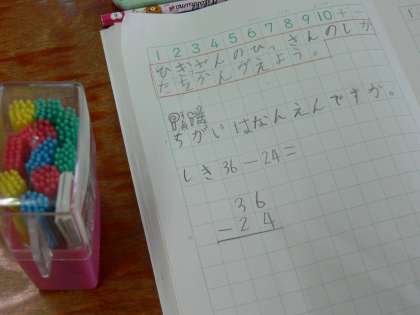 1 2 3 4 5 6 7 8 9 10 + -
ひきざんのひっさんのしか
たをかんがえよう。
ちがいはなんえんですか。
しき 36－24＝
36
－24